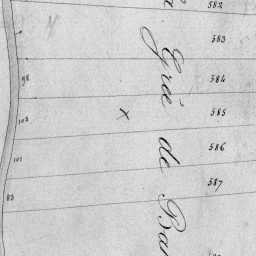 582
583
584
585
586
587
98
102
101
83
x
Grée de Bar